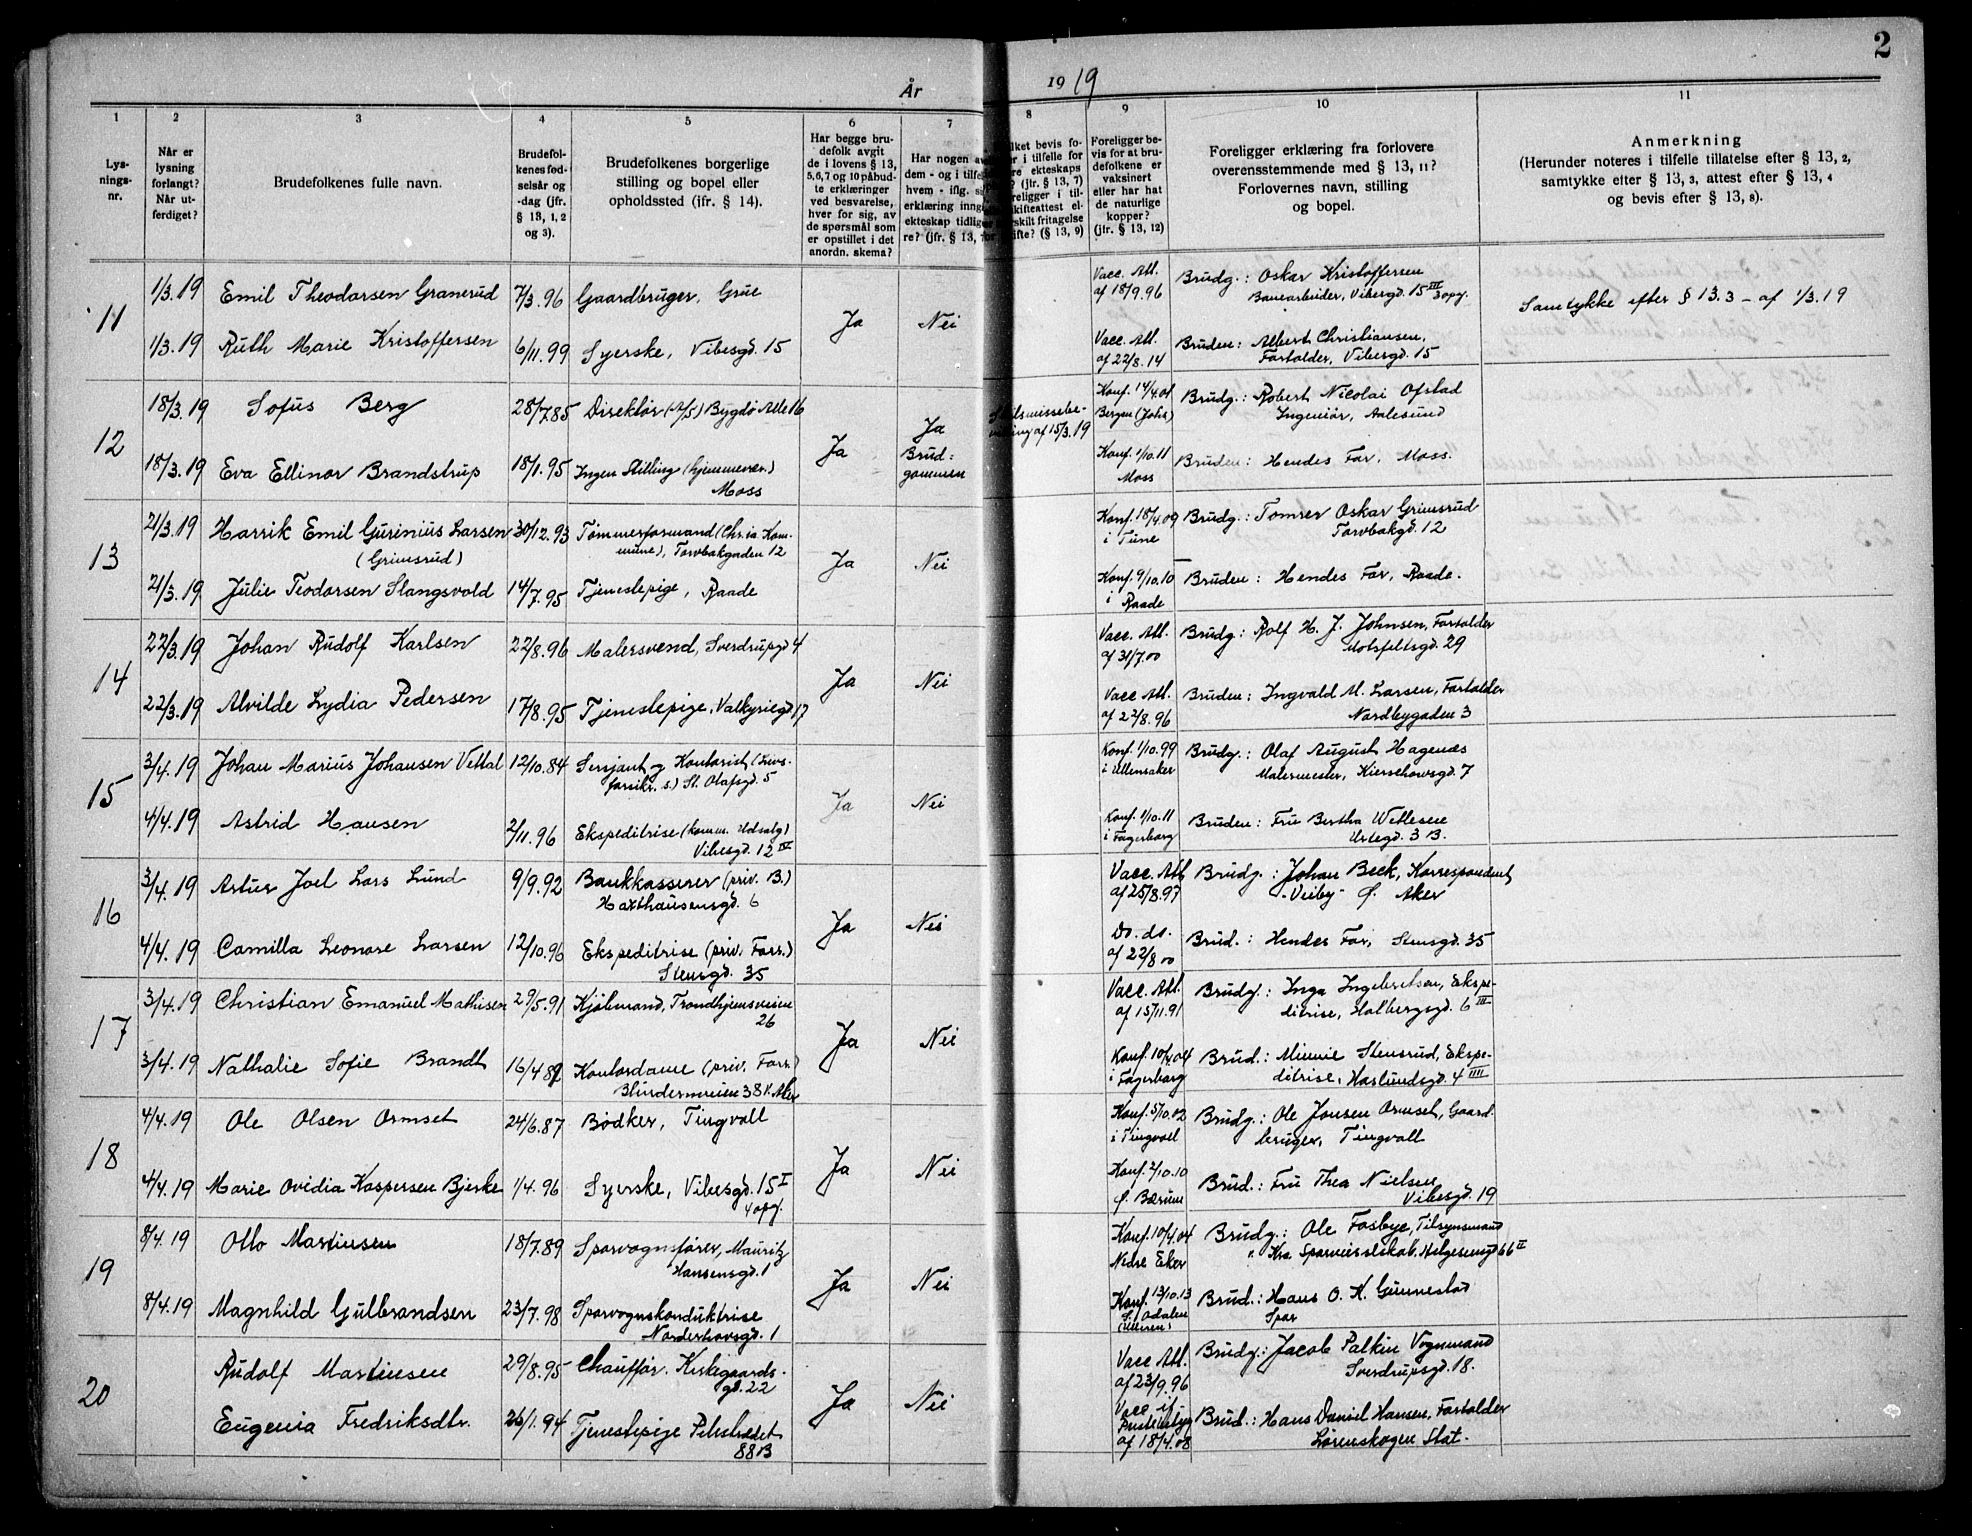 2
År 1919
1 2 3 4 5 6 7 8 9 10 11
Lys-
nings-
nr.
Når er
lysning
forlangt?
Når ut-
ferdiget?
Brudefolkenes fulle navn.
Brudefol-
kenes fød-
selsår og
-dag (jfr.
§ 13, 1, 2
og 3).
Brudefolkenes borgerlige
stilling og bopel eller
opholdssted (jfr. § 14).
Har begge bru-
defolk avgit
de i lovens § 13,
5,6,7 og 10 påbud-
te erklæringer
ved besvarelse,
hver for sig, av
de spørsmål som
er opstillet i det
anordn. skema?
Har nogen av
dem - og i tilfel
hvem - iflg. si
erklæring inng
ekteskap tidlige
re? (jfr. § 13,
lket bevis fo-
r i tilfelle for
re ekteskaps
? (jfr. § 13, 7)
religger i til-
kifteattest el-
rskilt fritagelse
ifte? (§ 13, 9)
Foreligger be-
vis for at bru-
defolkene er
vaksinert
eller har hat
de naturlige
kopper?
(jfr. § 13, 12)
Foreligger erklæring fra forlovere
overensstemmende med § 13, 11?
Forlovernes navn, stilling
og bopel.
Anmerkning
(Herunder noteres i tilfelle tillatelse efter § 13, 2,
samtykke efter § 13, 3, attest efter § 13, 4
og bevis efter § 13, 8).
11
1/3.19 Emil Theodorsen Granerud 7/3.96 Gaardbruger, Grue
Ja Nei
Vacc. Att.
af 18/9.96
Brudg.: Oskar Kristoffersen
Banearbeider, Vibesgd. 15 III 3 opg.
Samtykke efter § 13.3 - af 1/3.19
1/3.19 Ruth Marie Kristoffersen 6/11.99 Syerske, Vibesgd. 15
Vacc. Att.
af 22/8.14
Bruden: Albert Christiansen,
Forfalder, Vibesgd. 15
12
18/3.19 Sofus Berg 28/7.85 Direktør (A/S) Bygdø Alle 16
Ja
Ja
Brud-
gommen
af 15/3.19
Konf. 14/4.01
Bergen (Johs)
Brudg.: Robert Nicolai Ofstad
Ingeniør, Aalesund
18/3.19 Eva Ellinor Brandstrup 18/1.95 Ingen Stilling (hjemmevær.)
Moss
Konf. 1/10.11
Moss
Bruden: Hendes Far, Moss.
13
21/3.19 Harrik Emil Gurinius Larsen
(Grimsrud)
30/12.93 Tømmerformand (Chr.ia Kom-
mune), Torvbakgaden 12
Ja Nei
Konf. 18/4.09
i Tune
Brudg.: Tømrer Oskar Grimsrud
Torvbakgd. 12
21/3.19 Julie Teodorsen Slangsvold 14/7.95 Tjenestepige, Raade
Konf. 9/10.10
i Raade
Bruden: Hendes Far, Raade.
14
22/3.19 Johan Rudolf Karlsen 22/8.96 Malersvend, Sverdrupgd 4
Ja Nei
Vacc. Att.
af 31/7.00
Brudg.: Rolf H. J. Johnsen, Forfalder
Motzfeltsgd. 29
22/3.19 Alvilde Lydia Pedersen 17/8.95 Tjenestepige, Valkyriegd. 17
Vacc. Att.
af 22/8.96
Bruden: Ingvald M. Larsen, Forfalder
Nordbygaden 3
15
3/4.19 Johan Marius Johansen Vettal 12/10.84 Sersjant og Kontorist (Livs-
forsikr. s.) St. Olafsgd. 5
Ja Nei
Konf. 1/10.99
i Ullensaker
Brudg.: Olaf August Hagenæs
Malermester, Kierschowsgd. 7
4/4.19 Astrid Hansen 2/11.96 Ekspeditrise (komm. Udsalg)
Vibesgd. 12 IV
Konf. 1/10.11
i Fagerborg
Bruden: Fru Bertha Wetlesen
Urtegd. 3 B.
16
3/4.19 Artur Joel Lars Lund 9/9.92 Bankkasserer (priv. B.)
Haxthausensgd. 6
Ja Nei
Vacc. Att.
af 25/8.97
Brudg.: Johan Beck, Korrespondent
Aker
4/4.19 Camilla Leonore Larsen 12/10.96 Ekspeditrise (priv. Forr.)
Stensgd. 35
Do. do.
af 22/8 00
Brud.: Hendes Far, Stensgd. 35
17
3/4.19 Christian Emanuel Mathisen 29/5.91 Kjøbmand, Trondhjemsveien
26
Ja Nei
Vacc. Att.
af 15/11.91
Brudg.: Inga Ingebretsen, Ekspe-
ditrise, Holbergsgd. 6 III
3/4.19 Nathalie Sofie Brandt 16/4 89 Kontordame (priv. Forr.)
Blindernveien 38 V. Aker
Konf. 10/4.04
i Fagerborg
Brud.: Minnie Stensrud, Ekspe-
ditrise, Haslundsgd. 4 IIII
18
4/4.19 Ole Olsen Ormset 24/6.87 Bødker, Tingvoll
Ja Nei
Konf. 5/10.02
i Tingvoll
Brudg.: Ole Jonsen Ormset, Gaard-
bruger, Tingvoll
4/4.19 Marie Ovidia Kaspersen Bjerke 1/4.96 Syerske, Vibesgd. 15 I
4 opg.
Konf. 2/10.10
Ø. Bærum
Brud.: Fru Thea Nielsen
Vibesgd. 19
19
8/4.19 Otto Martinsen 18/7.89 Sporvognsfører, Mauritz
Hansensgd. 1
Ja Nei
Konf. 10/4.04
Nedre Eker
Brudg.: Ole Fosbye, Tilsynsmand
v. Kra. Sporveisselskab, Helgesensgd 66 II
8/4.19 Magnhild Gulbrandsen 23/7.98 Sporvognskonduktrise
Norderhovsgd. 1
Konf. 13/10.13
S. Odalen
(Ulleren)
Brud.: Hans O. K. Gunnestad
Spor
20
Rudolf Martinsen 29/8.95 Chauffør. Kirkegaards-
gd. 22
Ja Nei
Vacc Att.
af 23/9.96
Brudg.: Jacob Palkin Vognmand
Sverdrupsgd. 18.
Eugenia Fredriksdtr. 26/1.94 Tjenestepige Pilestrædet
88B
Vacc
af 18/4.08
Brud.: Hans Daniel Hansen, Forfalder
Lørenskogen Stat.